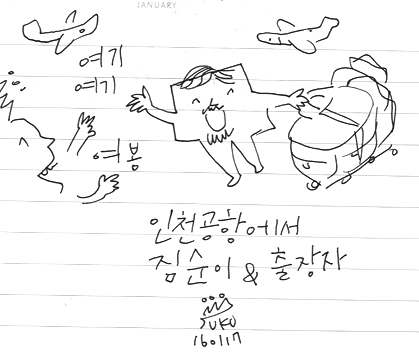 JANUARY
여기
여기
여봉
인천공항에서
짐순이 & 출장자
SUKO
160117